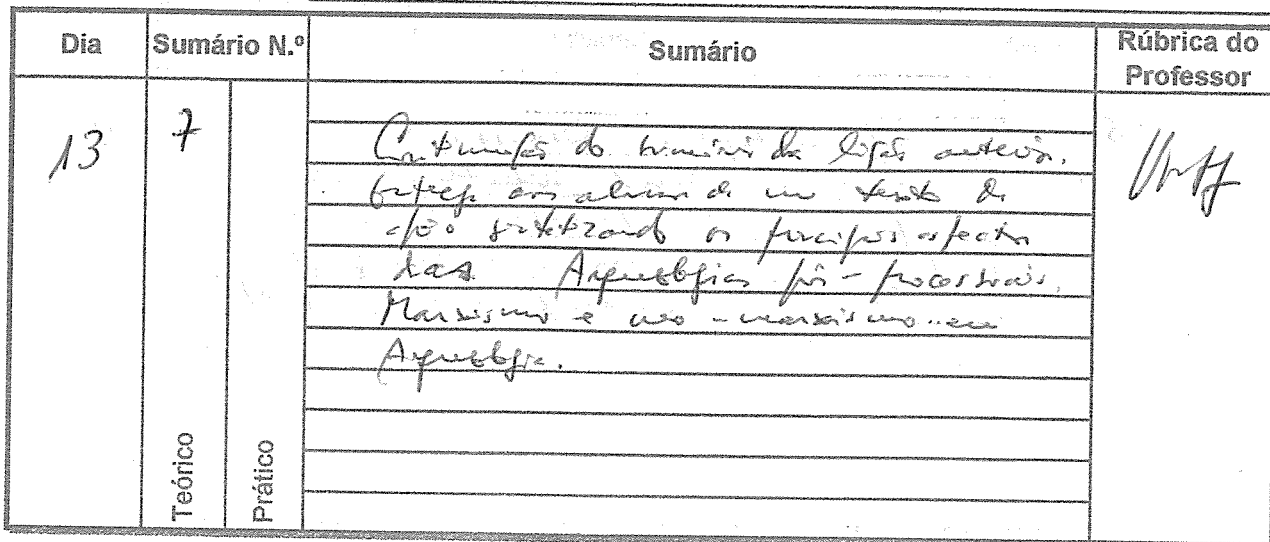 Dia
Sumário N.º
Sumário
Rúbrica do
Professor
13
7
Continuação do sumário da lição anterior.
Entrega aos alunos de um texto de
apoio sintetizando os principais aspectos
das Arqueologias pós-processuais.
Marxismo e neo-marxismo em
Arqueologia.
Teórico
Prático